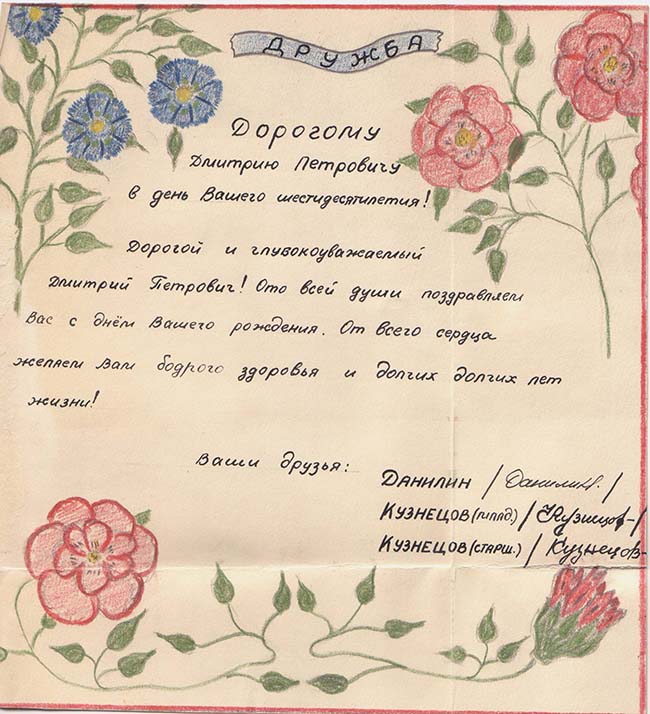 ДРУЖБА
Дорогому
Дмитрию Петровичу
в день Вашего шестидесятилетия!
Дорогой и глубокоуважаемый
Дмитрий Петрович! Ото всей души поздравляем
Вас с днём Вашего рождения. От всего сердца
желаем Вам бодрого здоровья и долгих долгих лет
жизни!
Ваши друзья:
Данилин /Данилин/
Кузнецов (млад.) /Кузнецов/
Кузнецов (старш.) /Кузнецов